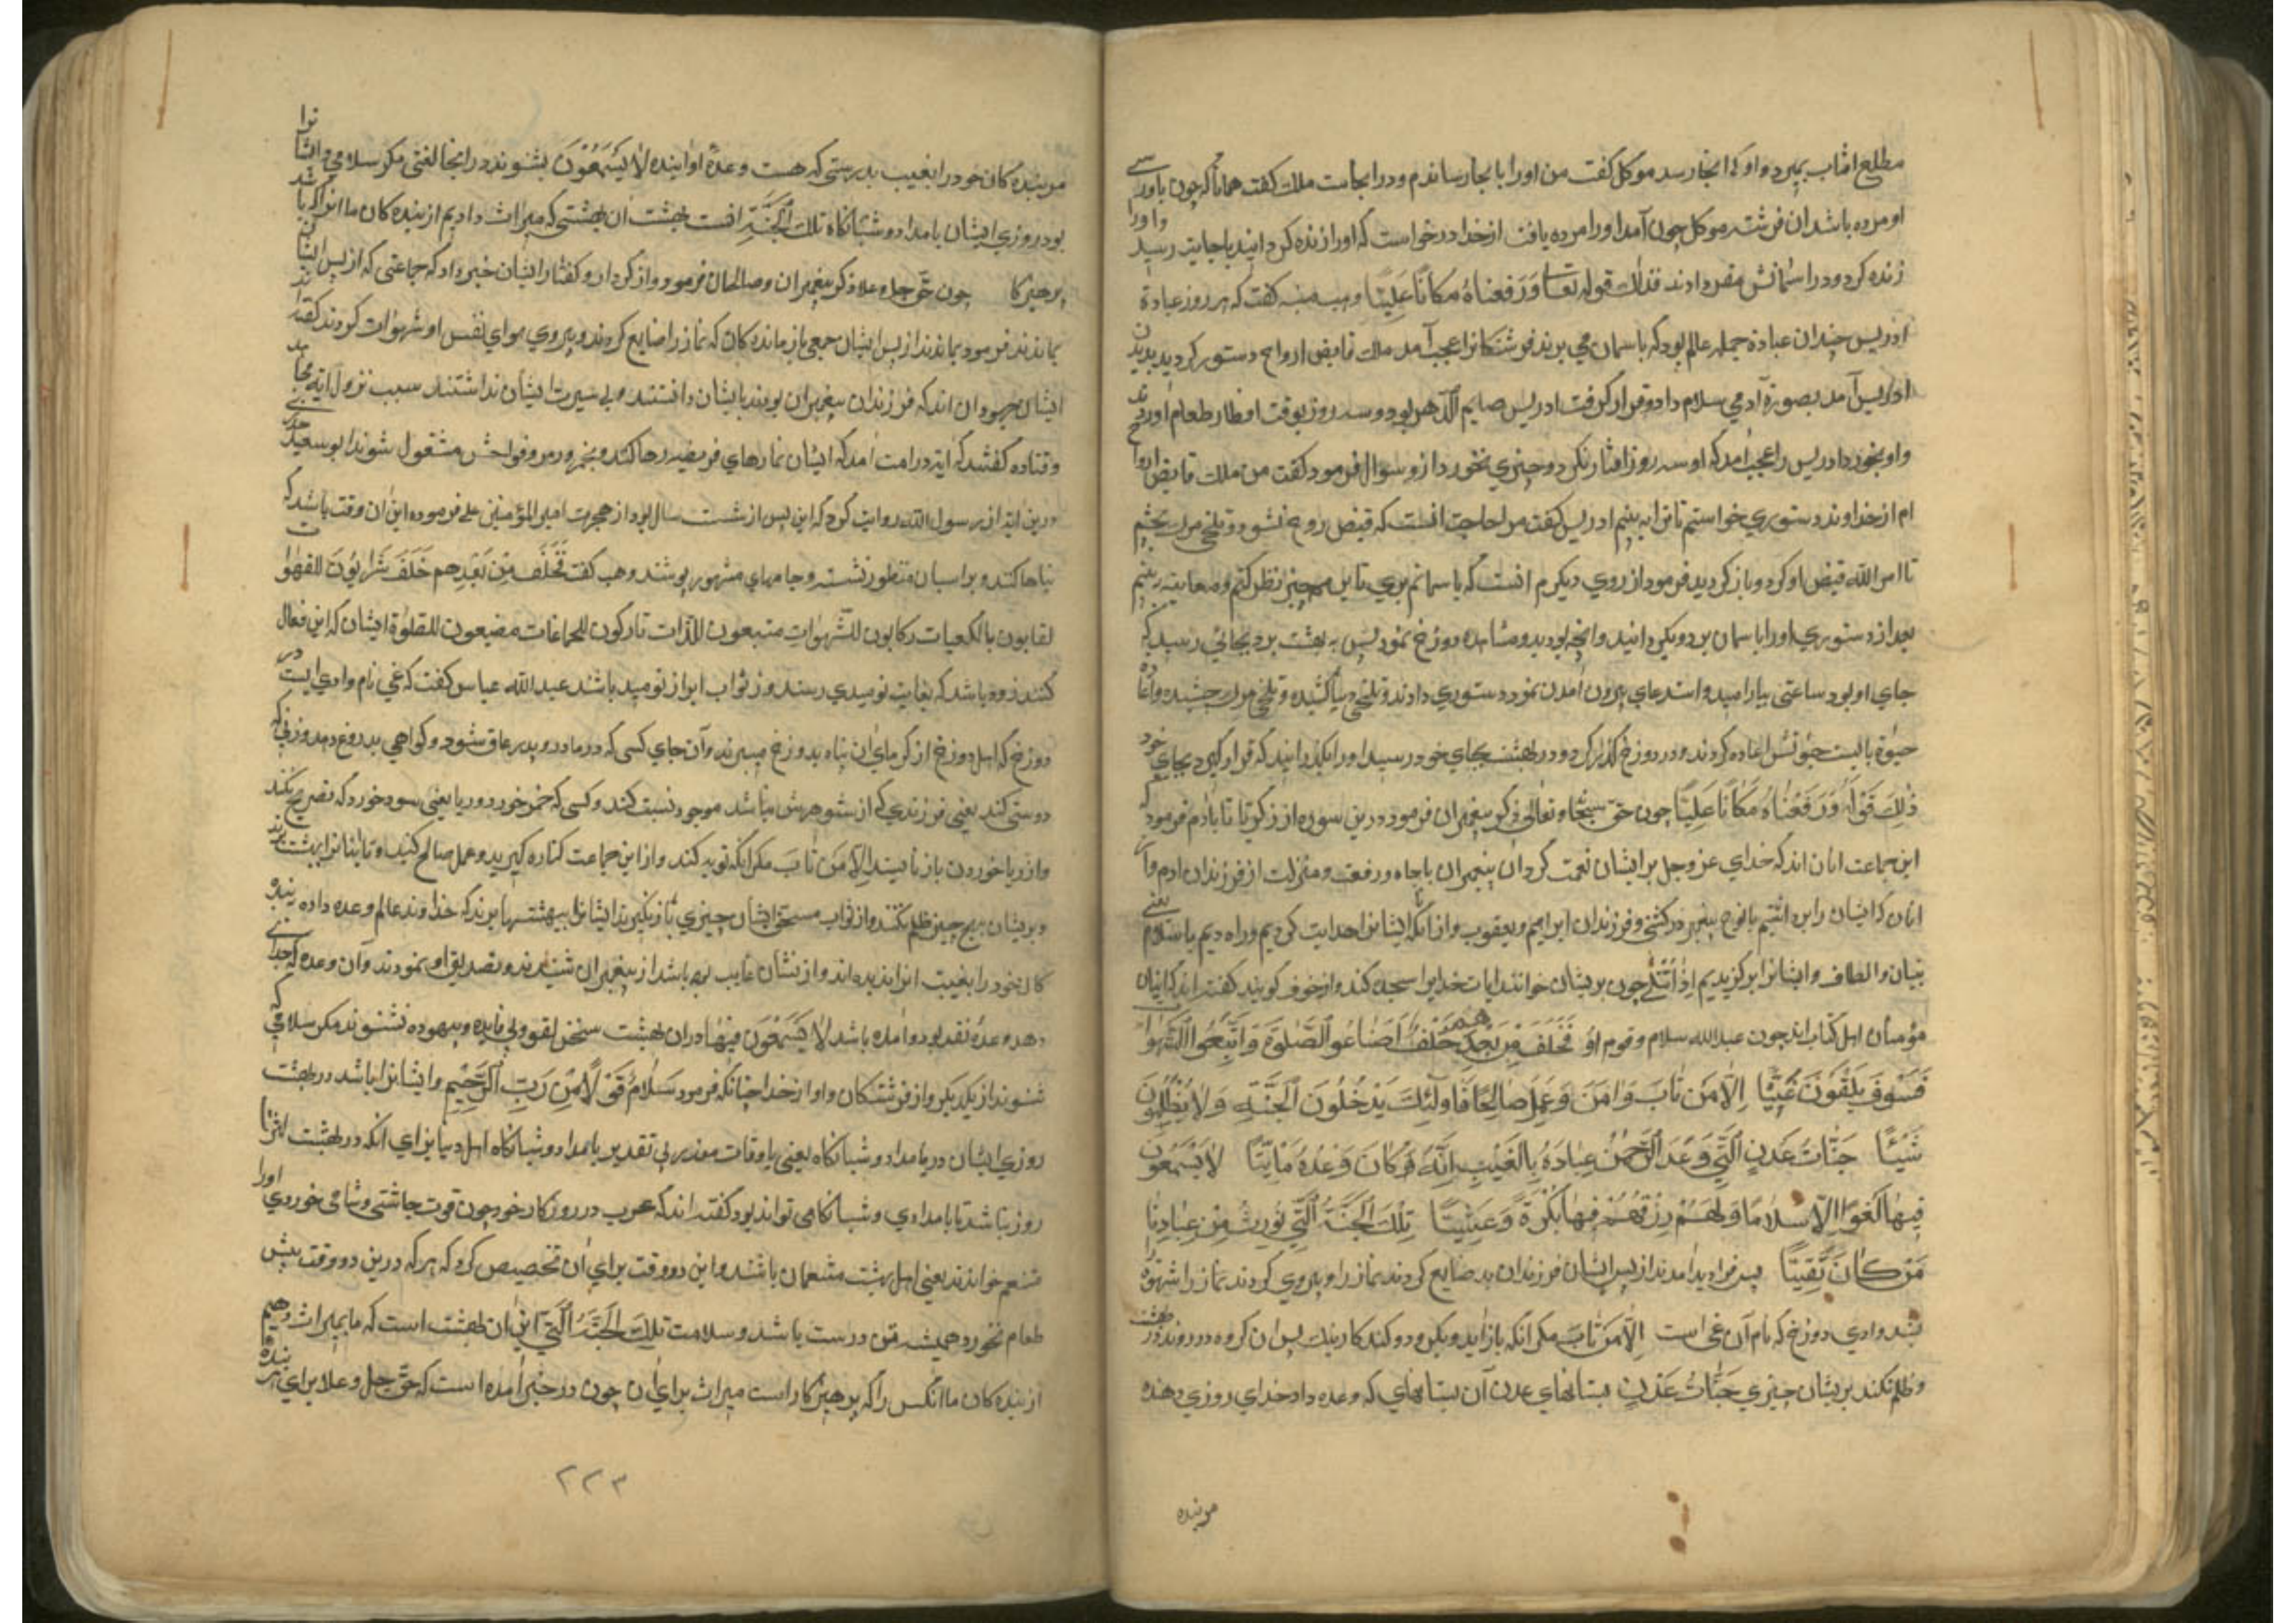 مطلع افتاب بمیرد و او کی انجا رسد موکل کفت من اورا بانجا رساندم و در انجاست ملك کفت همانا که چون باو رسی
او مرده باشد ان فرشته موکل چون آمد اورا مرده یافت از خدا درخواست که اورا زنده کرداند باجابت رسید و اورا
زنده کرد و در اسمانش مقر دادند فذلك قوله تعا وَرَفَعناهُ مكانًا عَلِيًّا وهب منبه کفت که هر روز عبادة
ادریس چندان عبادة جمله عالم بود که باسمان می بردند فرشتکانرا عجب آمد ملك قابض ارواح دستور کردید بدیدن
ادریس آمد بصورة آدمی سلام داد و قرار کرفت ادریس صایم الدهر بود و سه روز بوقت افطار طعام اوردند
و او نخورد ادریس را عجب امد که او سه روز افطار نکرد و چیزی نخورد ازو سوال فرمود کفت من ملك قابض ارواح
ام از خداوند دستوری خواستم تا ترا به بینم ادریس کفت مرا حاجت انست که قبض روح نشود و تلخی مرك بچشم
تا امر الله قبض او کرد و باز کردید فرمود از روی دیکرم انست که باسمانم بری تا بر همه چیز نظر کنم و معاینه بینم
بعد از دستوری اورا باسمان برد و بکردانید وانچه بود بدید و مشاهده دوزخ نمود پس به بهشت برد بجائی رسید که
جای او بود ساعتی بیارامید و استدعای بیرون آمدن نمود دستوری دادند و تلخی دنیا کشیده و تلخی مرك چشیده و اعاده
حیوة بایست حیوتش اعاده کردند و در دوزخ کذر کرد و در بهشت بجای خود رسید اورا بکذرانید که قرار کیرد بجای خود
ذلِكَ قَولُهُ وَرَفَعْنَاهُ مَكَانًا عَلِيًّا چون حق سبحانه وتعالی ذکر پیغمبران فرمود درین سوره از زکریا تا بادم فرمود که
این جماعت انان اند که خدای عز وجل بر ایشان نعمت کرد ان پیغمبران باجاه و رفعت و منزلت از فرزندان ادم و از
انان که ایشان را بر داشتیم با نوح پیغمبر در کشتی و فرزندان ابراهیم و یعقوب و از انکه ایشانرا هدایت کردیم و راه دیم باسلام یعنی
بتبیان و الطاف و ایشانرا برکزیدیم اِذَا تُتْلَى چون بر یشان خوانند ایات خدایرا سجده کنند و از خوف کویند کفته اند کایشان
مؤمنان اهل کتاب اند چون عبد الله سلام و قوم او فَخَلَفَ مِن بَعْدِهِمْ خَلْفٌ اَضَاعُوا الصَّلٰوةَ وَاتَّبَعُوا الشَّهَوَاتِ
فَسَوفَ يَلْقَوْنَ غَيًّا اِلَّا مَن تَابَ وَاٰمَنَ وَعَمِلَ صَالِحًا فَاُولٰئِكَ يَدْخُلُونَ الْجَنَّةَ وَلَا يُظْلَمُونَ
شَيْئًا جَنَّاتُ عَدْنٍ الَّتِي وَعَدَ الرَّحْمٰنُ عِبَادَهُ بِالْغَيْبِ اِنَّهُ كَانَ وَعْدُهُ مَاْتِيًّا لَا يَسْمَعُونَ
فِيهَا لَغْوًا اِلَّا سَلَامًا وَلَهُمْ رِزْقُهُمْ فِيهَا بُكْرَةً وَعَشِيًّا تِلْكَ الْجَنَّةُ الَّتِي نُورِثُ مِنْ عِبَادِنَا
مَنْ كَانَ تَقِيًّا پس فرا دید امدند از پس ایشان فرزندان بد ضایع کردند نماز را و پیروی کردند نماز را شهوة
بیند وادی دوزخ که نام آن غی است اِلَّا مَن تَابَ مکر انکه باز اید و بکرود و کند کار نیك پس ان کروه در روند در بهشت
و ظلم نکند بر یشان چیزی جَنَّاتُ عَدْنٍ بستانهای عدن آن بستانهای که وعده داد خدای روزی دهنده
مر بنده
مر بنده کان خود را بغیب بدرستی که هست وعدهٔ او اینده لَا يَسْمَعُوْنَ بشنوند در انجا لغتی مکر سلامی و ایشانرا
بود روزی ایشان بامداد و شبانکاه تِلكَ الْجَنَّةُ انست بهشت ان بهشتی که میراث دادیم از بنده کان ما انرا که باشد
پرهیزکا چون حق جل وعلا ذکر پیغمبران و صالحان فرمود و از کردار و کفتار ایشان خبر داد که جماعتی که از پس ایشان
بماندند فرمود بماندند از پس ایشان جمعی باز مانده کان که نماز را ضایع کردند و پیروی هوای نفس او شهوات کردند کفته اند
ایشان جهودان اند که فرزندان پیغمبران بودند با یشان دانستند ولی سیرت ایشان نداشتند سبب نزول ایة مجاهد
و قتاده کفتند که ایة در امت امد که ایشان نمازهای فریضه رها کنند و بخمر و زمر و فواحش مشغول شوند ابو سعید خدری
درین ایة از رسول الله روایت کرد که این پس از شست سال بود از هجرت امیر المؤمنین علی فرموده این ان وقت باشد که
بناها کنند و بر اسبان منظور نشسته و جامهای مشهور پوشند وهب کفت فَخَلَفَ مِنْ بَعْدِهِم خَلَفَ شَرَّابُونَ للقهوات
لعابون بالکعبات رکابون للشهوات متبعون اللذات تارکون للجماعات مضیعون للصلوة ایشان که این فعال
کنند زود باشد که بغایت نومیدی رسند و ز ثواب ابرار نومید باشند عبد الله عباس کفت که غی نام وادی ایست در
دوزخ که اهل دوزخ از کرمای ان پناه بدوزخ میبرند و آن جای کسی که در مادر و پدر عاق شود و کواهی بدروغ دهد و زنی که
دوستی کند یعنی فرزندی که از شوهرش نباشد موجود نسبت کند و کسی که خمر خورد و ربا یعنی سود خورد که تصریح نکند
و از ربا خوردن باز نایستد اِلَّا مَن تَابَ مکر انکه توبه کند و از این جماعت کناره کیرید و عمل صالح کنید و تا یشانرا ببهشت برند
و بر یشان بهیچ چیز ظلم نکنند و از ثواب مستحق ایشان چیزی باز نکیرند ایشانرا ببهشتها برند که خداوند عالم وعده داده بنده
کان خود را بغیبت انرا ندیده اند و از نشان غایب بوده باشد از پیغمبران شنیدند و تصدیق او نمودند و آن وعده که خدای
دهد وعدهٔ نقد بود و امده باشد لَا يَسْمَعُوْنَ فِيْهَا در ان بهشت سخن لغو و بی فایده و بیهوده نشنوند مکر سلامی که
شنوند از یکدیکر و از فرشتکان و او از خدا چنانکه فرمود سَلَامٌ قَوْلًا مِنْ رَبِّ الرَّحِيْمِ و ایشانرا باشد در بهشت
روزی ایشان در بامداد و شبانکاه یعنی باوقات مقدر بی تقدیر بامداد و شبانکاه اهل دنیا برای انکه در بهشت
روز نباشد تا بامدادی و شبانکاهی تواند بود کفته اند که عرب در روزکار خود چون قوت چاشتی و شامی خوردی اورا
متنعم خواندند یعنی اهل بهشت متنعمان باشند و این دو وقت برای آن تخصیص کرد که هر که درین دو وقت بیش
طعام نخورد همیشه تن درست باشد و سلامت تِلكَ الجَنَّةُ الَّتِي این ان بهشت است که ما بمیراث دهیم
از بنده کان ما انکس را که پرهیزکار است میراث برای ان چون در خبر آمده است که حق جل وعلا برای هر بنده
۲۲۳